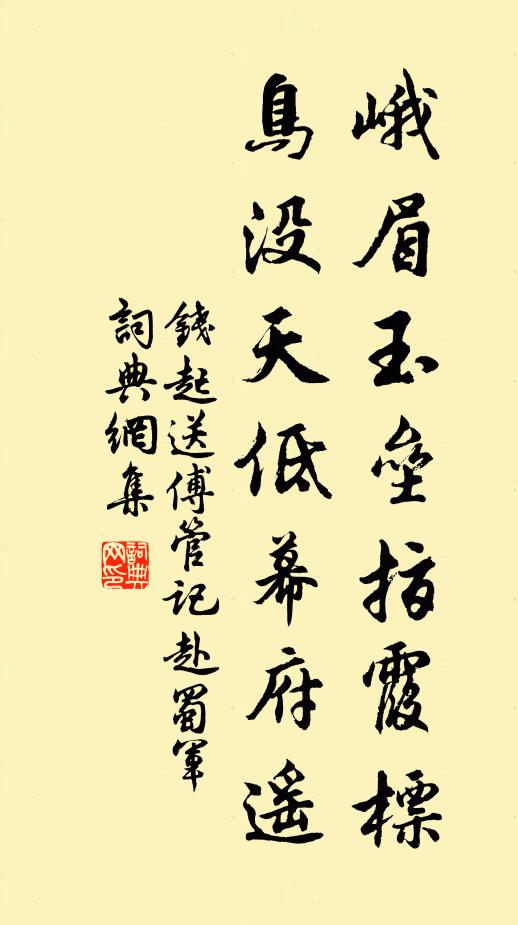 峨眉玉垒指霞標
鳥没天低幕府遥
錢起送傅管記赴蜀軍
詞典網集
詞典
网印